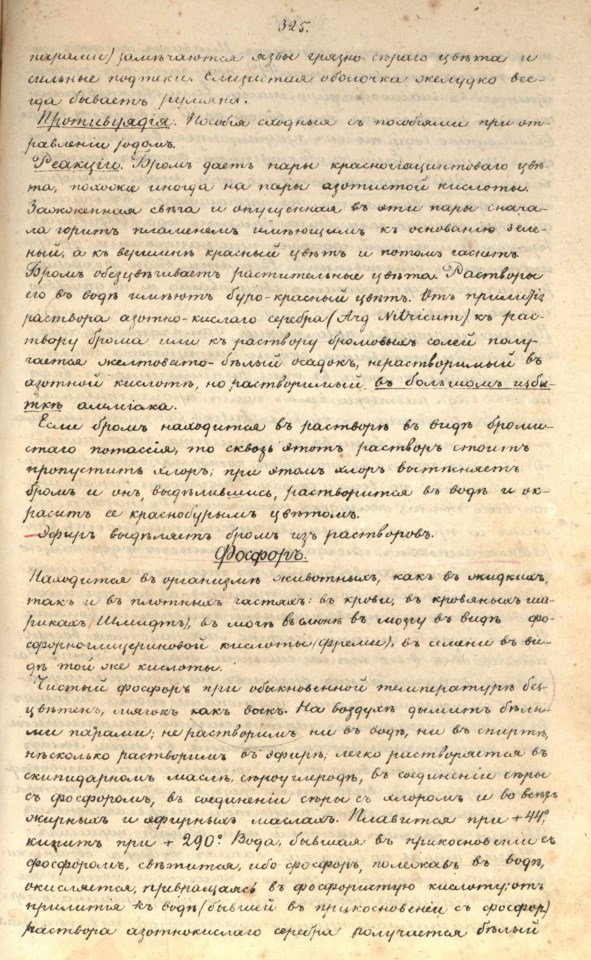 325.
парами) замѣчаются язвы грязно-сѣраго цвѣта и
сильные подтеки. Слизистая оболочка желудка все-
гда бываетъ румяна.
Противуядія. Пособія сходныя съ пособіями при от-
равленіи іодомъ.
Реакціи. Бромъ даетъ пары красногіацинтоваго цвѣ-
та, похожіе иногда на пары азотистой кислоты.
Зажженная свѣча и опущенная въ эти пары снача-
ла горитъ пламенемъ имѣющимъ къ основанію зеле-
ный, а къ вершинѣ красный цвѣтъ и потомъ гаснетъ.
Бромъ обезцвѣчиваетъ растительные цвѣта. Растворы
его въ водѣ имѣютъ буро-красный цвѣтъ. Отъ
раствора азотно-кислаго серебра (Arg Nitricum) къ рас-
твору брома или къ раствору бромовыхъ солей полу-
чается желтовато-бѣлый осадокъ, нерастворимый въ
азотной кислотѣ, но растворимый въ большомъ избы-
ткѣ амміака.
Если бромъ находится въ растворѣ въ видѣ броми-
стаго потассія, то сквозь этотъ растворъ стоитъ
пропустить хлоръ; при этомъ хлоръ вытѣсняетъ
бромъ и онъ, выдѣлившись, растворится въ водѣ и ок-
раситъ ее краснобурымъ цвѣтомъ.
Эфиръ выдѣляетъ бромъ изъ растворовъ.
Фосфоръ.
Находится въ организмѣ животныхъ, какъ въ жидкихъ,
такъ и въ плотныхъ частяхъ: въ крови, въ кровяныхъ ша-
рикахъ (Шмидтъ), въ мочѣ, въ слюнѣ, въ мозгу въ видѣ фо-
сфорноглицериновой кислоты (Фреми), въ сѣмени въ ви-
дѣ той же кислоты.
Чистый фосфоръ при обыкновенной температурѣ без-
цвѣтенъ, мягокъ какъ воскъ. На воздухѣ дымитъ бѣлы-
ми парами; не растворимъ ни въ водѣ, ни въ спиртѣ,
нѣсколько растворимъ въ эфирѣ; легко растворяется въ
скипидарномъ маслѣ, сѣроуглеродѣ, въ соединеніи сѣры
съ фосфоромъ, въ соединеніи сѣры съ хлоромъ и во всѣхъ
жирныхъ и эфирныхъ маслахъ. Плавится при +44°,
кипитъ при +290°. Вода, бывшая въ прикосновеніи съ
фосфоромъ, свѣтится, ибо фосфоръ, полежавъ въ водѣ,
окисляется, превращаясь въ фосфористую кислоту; отъ
прилитія къ водѣ (бывшей въ прикосновеніи съ фосфор)
раствора азотнокислаго серебра получается бѣлый